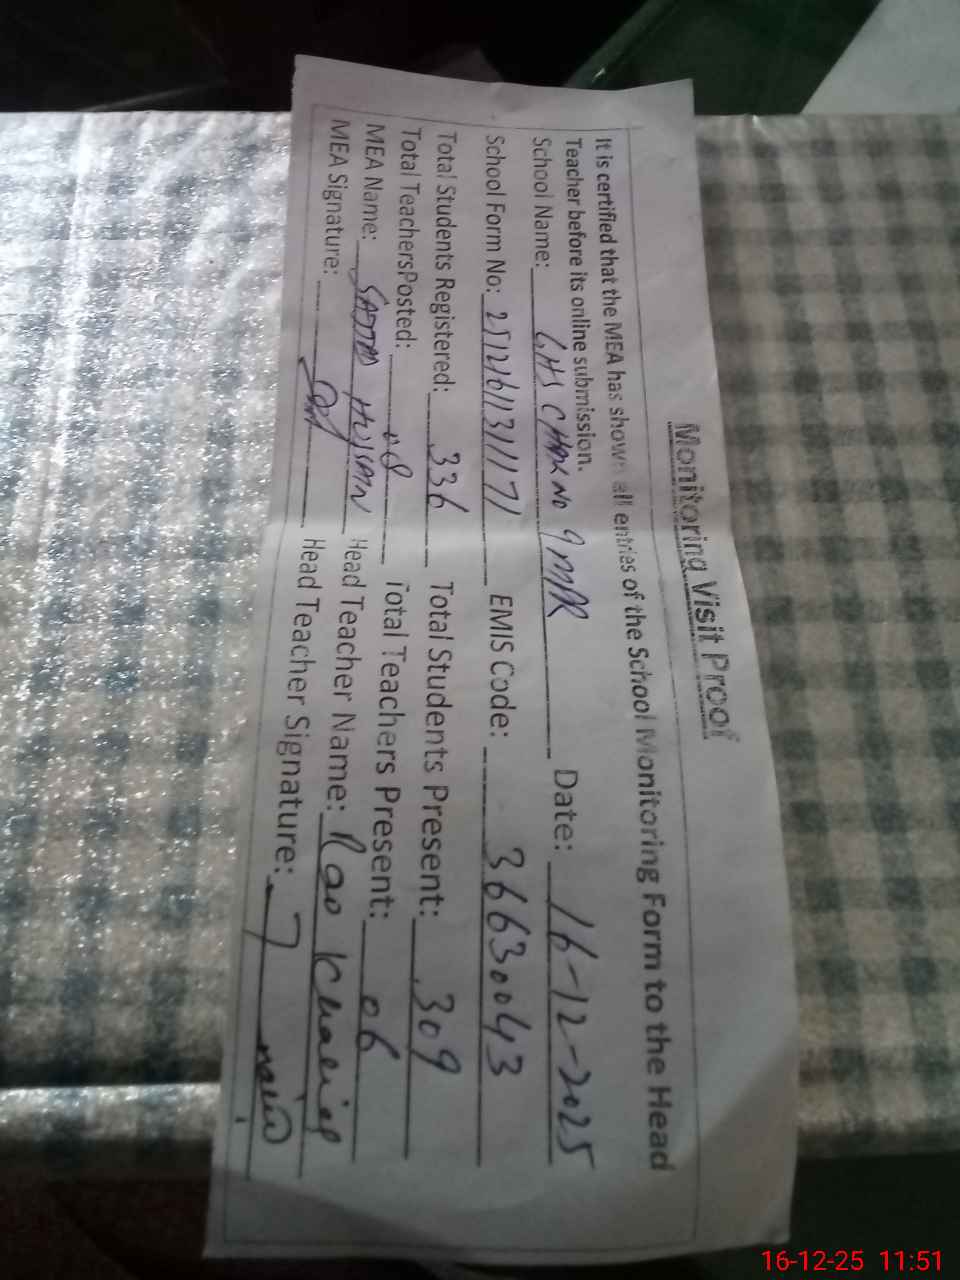 Monitoring Visit Proof
It is certified that the MEA has shown all entries of the School Monitoring Form to the Head
Teacher before its online submission.
School Name: GHS CHAK NO 9 MPR Date: 16-12-2025
School Form No: EMIS Code: 36630043
Total Students Registered: 336 Total Students Present: 309
Total TeachersPosted: 08 Total Teachers Present: 06
MEA Name: HUSSAIN Head Teacher Name: Rao
MEA Signature: Head Teacher Signature:
16-12-25 11:51